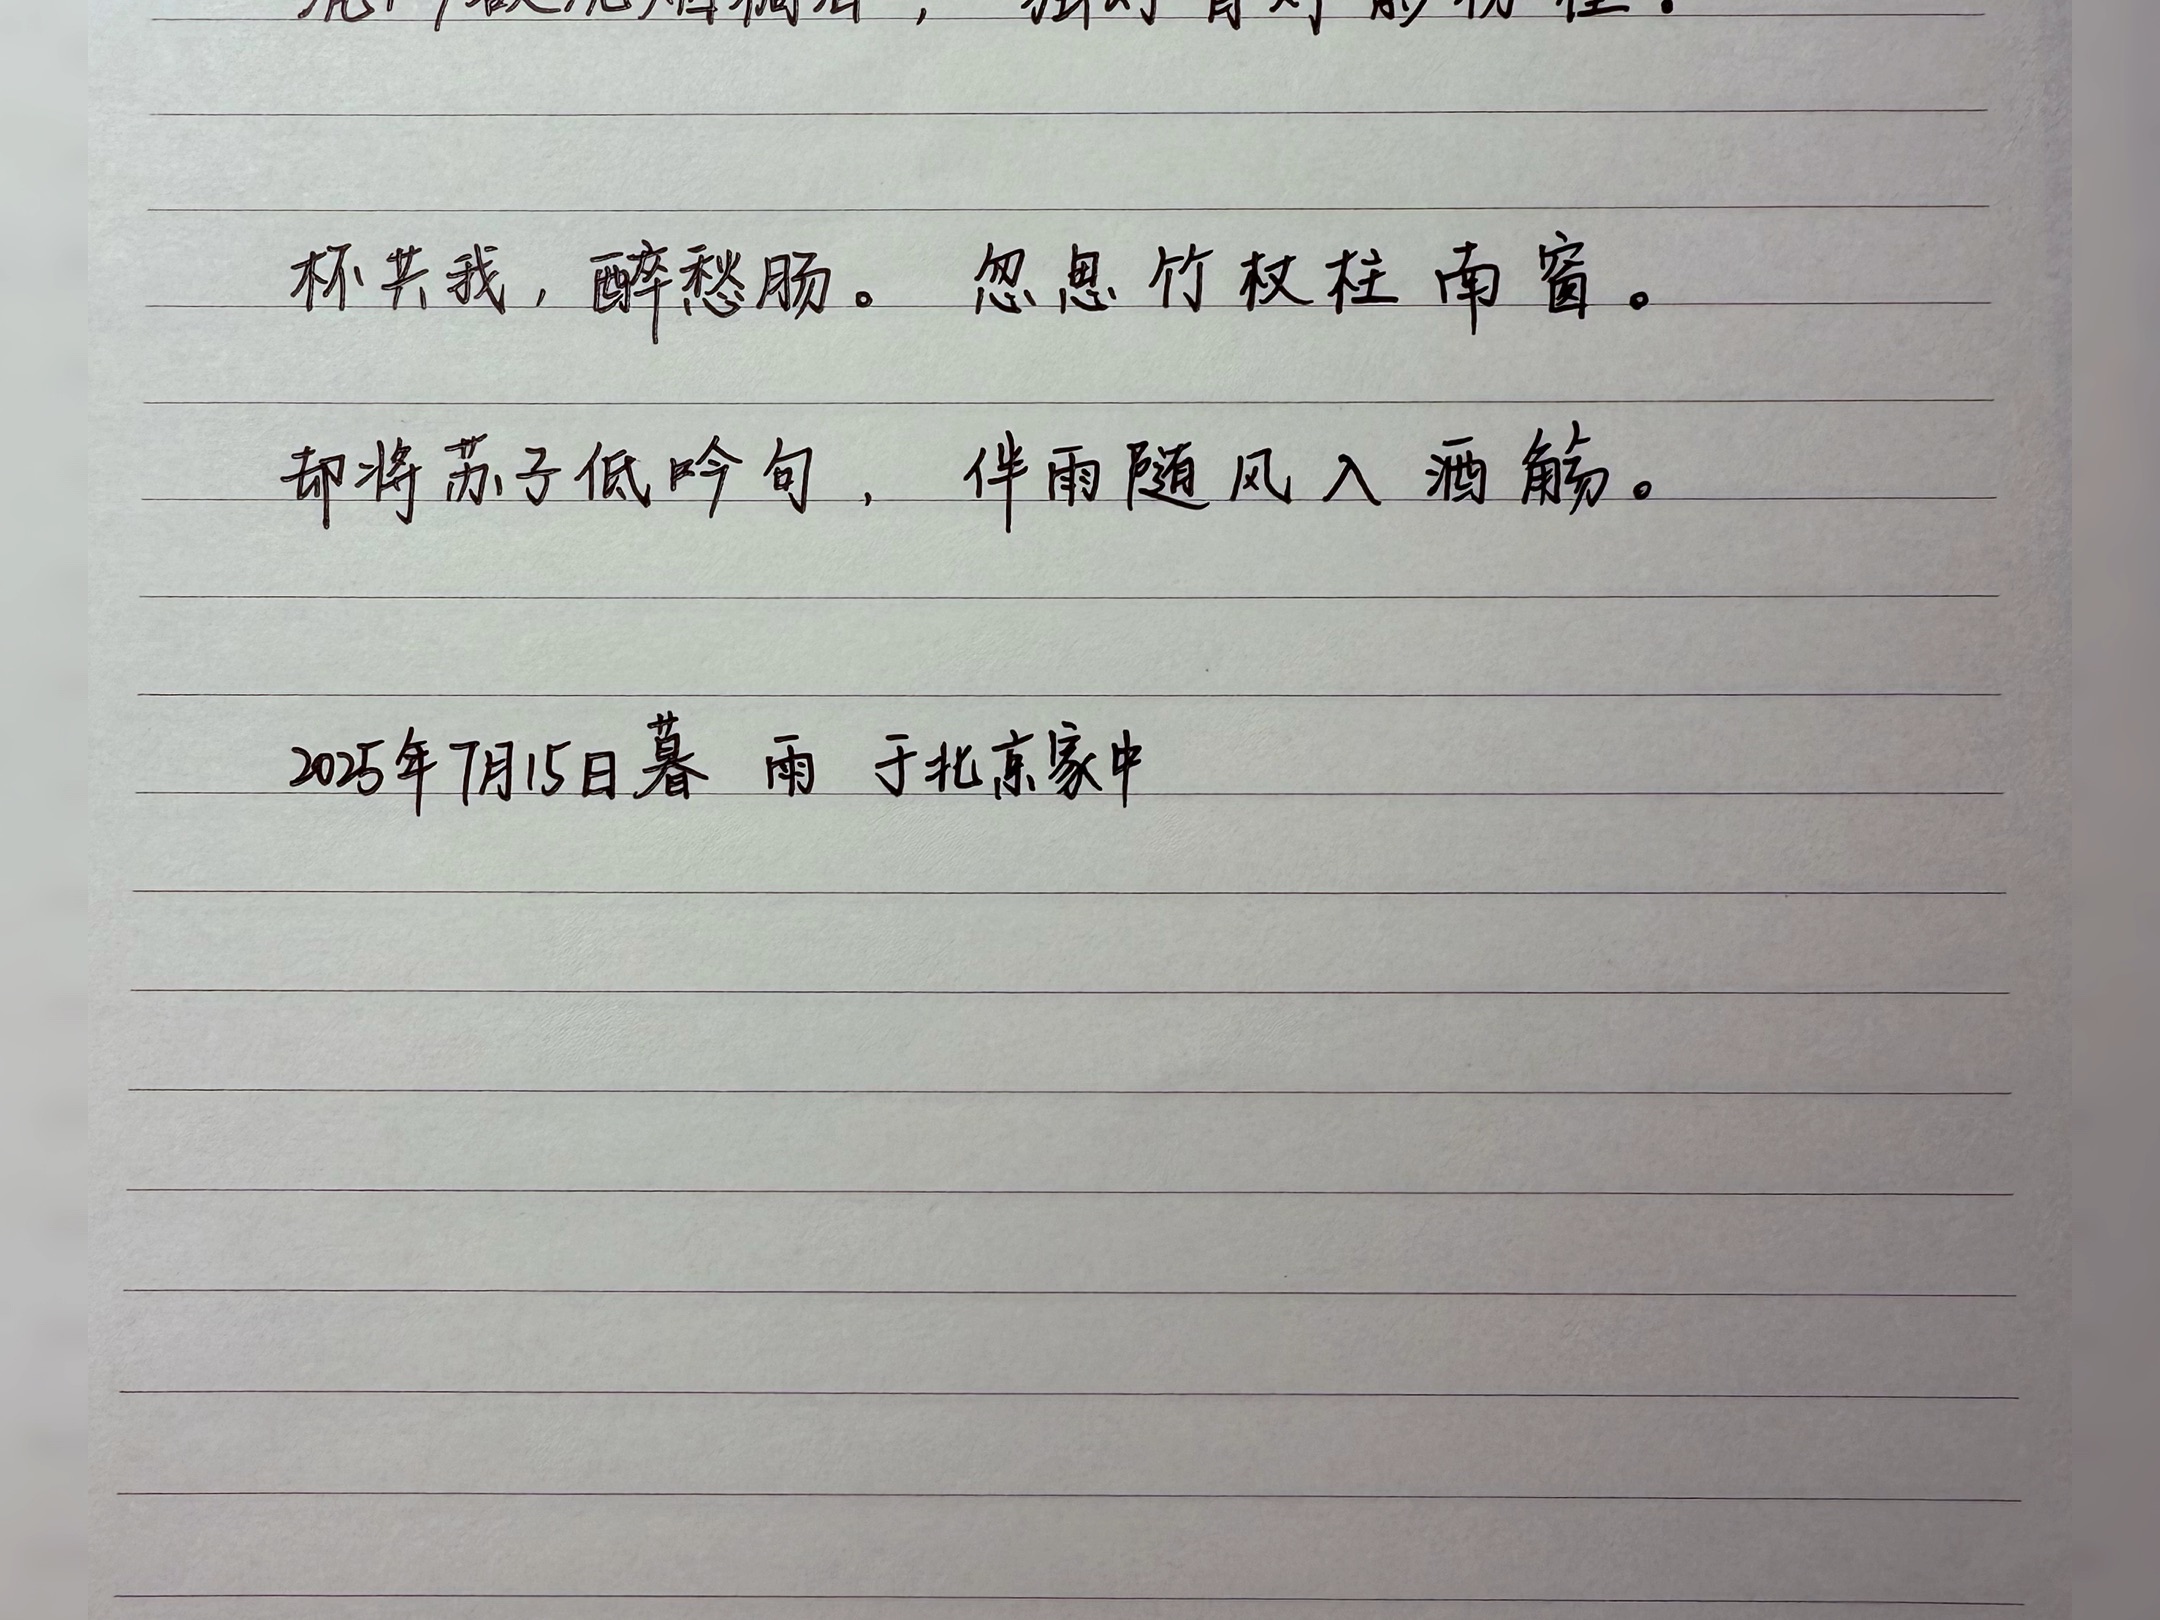 杯共我，醉愁肠。 忽思竹杖柱南窗。
却将苏子低吟句， 伴雨随风入酒觞。
2025年7月15日暮 雨 于北京家中